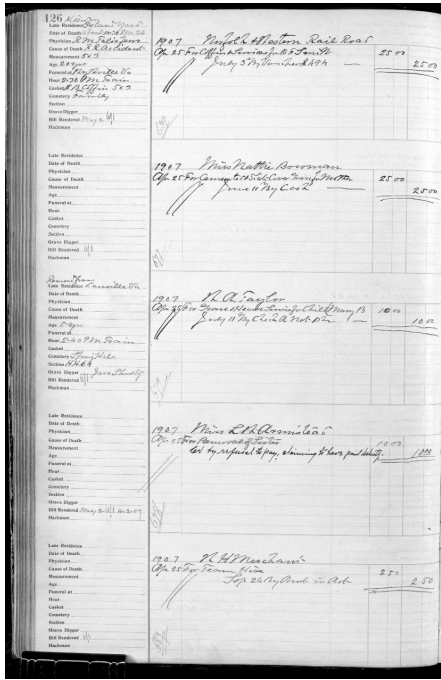 126
Late Residence
Date of Death
Physician
Cause of Death R R Accident
Measurement 5x3
Age 20 yrs
Funeral at
Hour 2:30 P M Train
Casket
Cemetery Family
Section
Grave Digger
Bill Rendered May 2
Hackman
1907 Norfolk & Western Rail Road
Ap 25 For Coffin & Services for Smith 25 00
July 3 By Voucher 25 00
Late Residence
Date of Death
Physician
Cause of Death
Measurement
Age
Funeral at
Hour
Casket
Cemetery
Section
Grave Digger
Bill Rendered
Hackman
1907 Miss Mattie Bowman
Ap 25 For Cemented Slate Cover Grave for Mother 25 00
June 11 By Cash 25 00
Removed from
Late Residence Danville Va
Date of Death
Physician
Cause of Death
Measurement
Age 5 yrs
Funeral at
Hour 5:40 P M Train
Casket
Cemetery Spring Hill
Section
Grave Digger
Bill Rendered
Hackman
1907 R A Taylor
Ap 25 For Grave & Hearse Service for Child Mary B 10 00
July 11 By Check 10 00
Late Residence
Date of Death
Physician
Cause of Death
Measurement
Age
Funeral at
Hour
Casket
Cemetery
Section
Grave Digger
Bill Rendered May 2
Hackman
1907 Miss L R Armistead
Ap 25 For Removal of Sister 10 00
by refusal to pay, claiming to have paid 10 00
Late Residence
Date of Death
Physician
Cause of Death
Measurement
Age
Funeral at
Hour
Casket
Cemetery
Section
Grave Digger
Bill Rendered
Hackman
1907 R H Merchant
Ap 25 For Team Hire 2 50
Sep 24 By 2 50